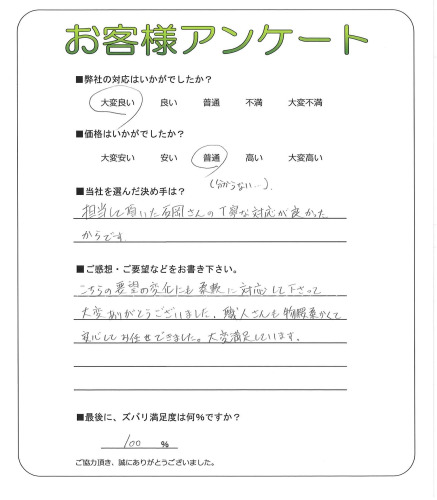 お客様アンケート
■弊社の対応はいかがでしたか？
大変良い 良い 普通 不満 大変不満
■価格はいかがでしたか？
大変安い 安い 普通 高い 大変高い
(分からない…).
■当社を選んだ決め手は？
担当して頂いた石岡さんの丁寧な対応が良かった
からです
■ご感想・ご要望などをお書き下さい。
こちらの要望の変化にも柔軟に対応して下さって
大変ありがとうございました。職人さんも物腰柔かくて
安心してお任せできました。大変満足しています。
■最後に、ズバリ満足度は何％ですか？
100 %
ご協力頂き、誠にありがとうございました。